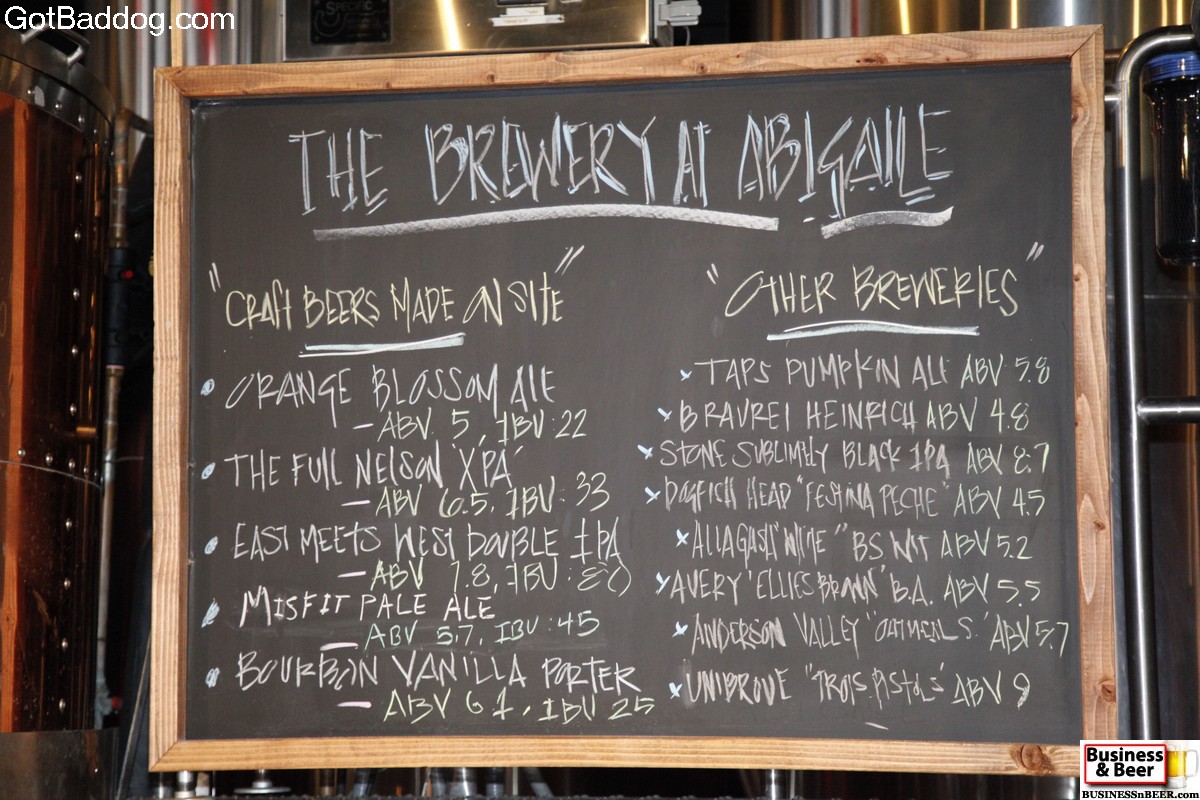 GotBaddog.com
SPECIFIC
THE BREWERY AT ABIGAILE
"CRAFT BEERS MADE ON SITE"
ORANGE BLOSSOM ALE
- ABV 5, IBU: 22
THE FULL NELSON "XPA"
- ABV 6.5, IBU: 33
EAST MEETS WEST DOUBLE IPA
- ABV 7.8, IBU: 80
MISFIT PALE ALE
- ABV 5.7, IBU: 45
BOURBON VANILLA PORTER
- ABV 6.1, IBU 25
"OTHER BREWERIES"
x TAPS PUMPKIN ALE ABV 5.8
x BRAUREI HEINRICH ABV 4.8
x STONE SUBLIMELY BLACK IPA ABV 8.7
x DOGFICH HEAD "FESTINA PECHE" ABV 4.5
x ALLAGASH "WHITE" BS WIT ABV 5.2
x AVERY "ELLIES BROWN" B.A. ABV 5.5
x ANDERSON VALLEY "OATMEAL S." ABV 5.7
x UNIBROUE "TROIS PISTOLS" ABV 9
Business
& Beer
BUSINESSnBEER.com